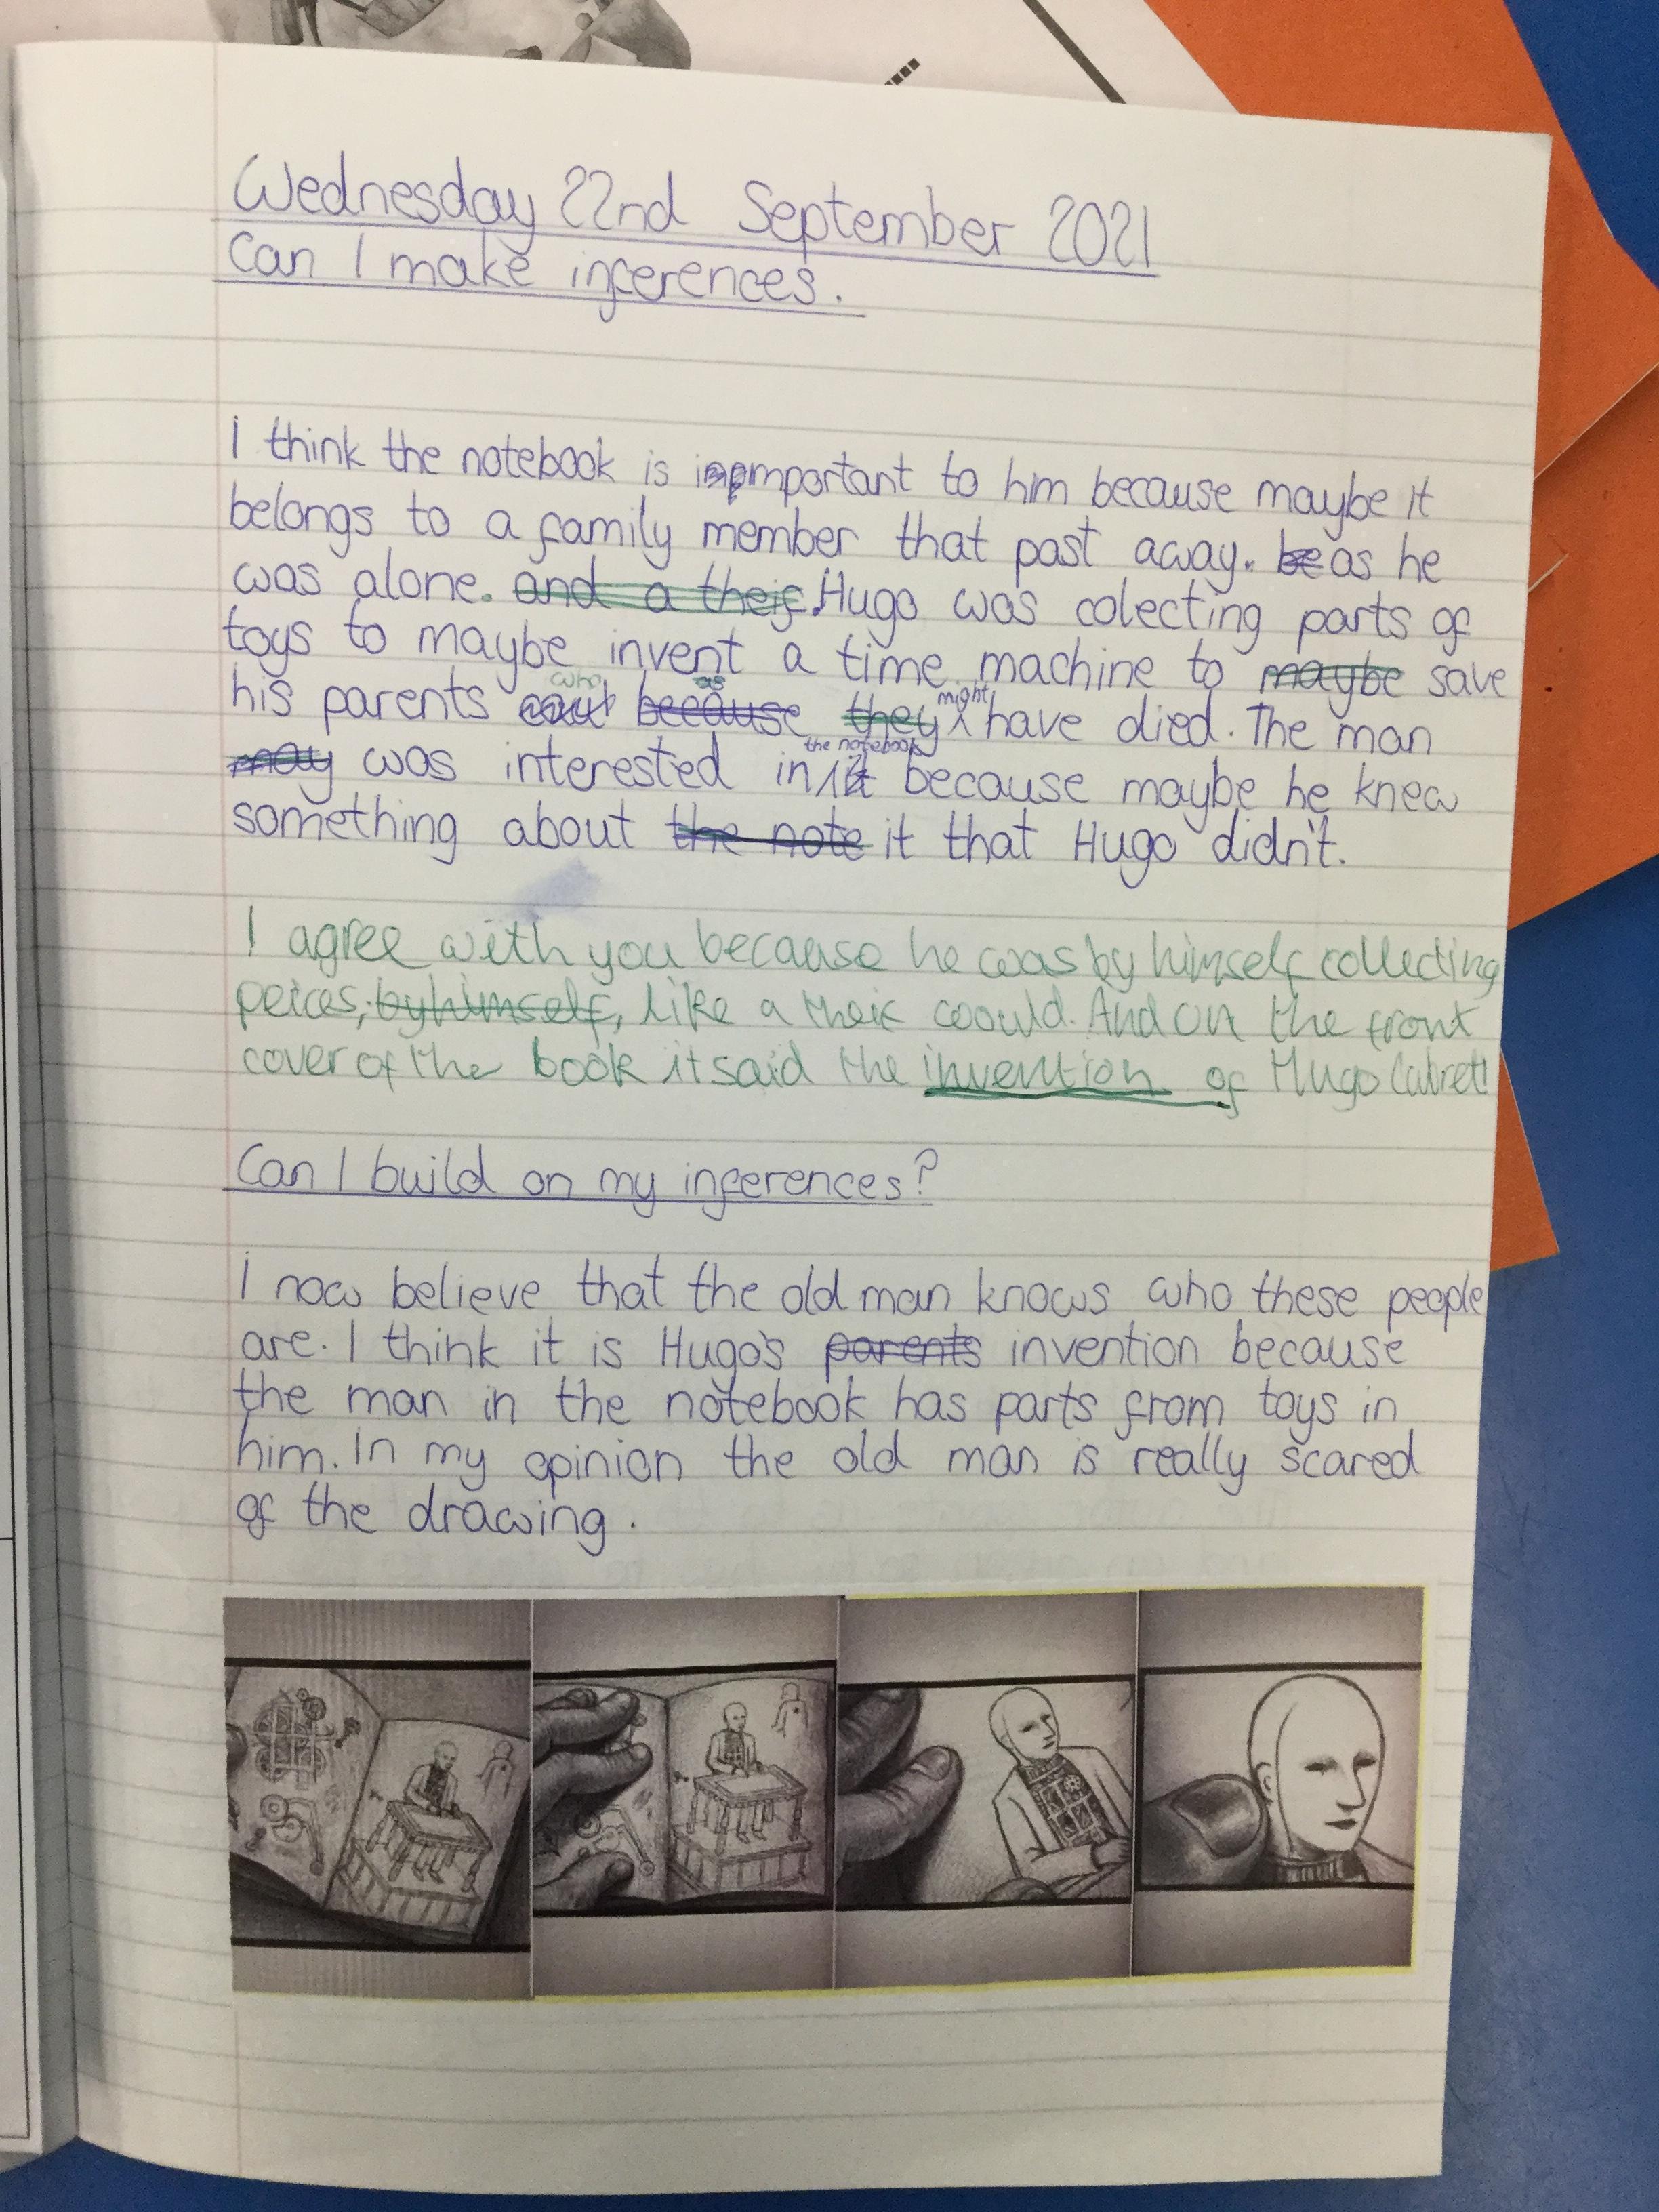 Wednesday 22nd September 2021
Can I make inferences.
I think the notebook is important to him because maybe it
belongs to a family member that past away. be as he
was alone. and a theif. Hugo was colecting parts of
toys to maybe invent a time machine to maybe save
who as might
his parents because they have died. The man
the notebook
may was interested in it because maybe he knew
something about the note it that Hugo didn't.
I agree with you because he was by himself collecting
peices, by himself, like a theif would. And on the front
cover of the book it said the invention of Hugo Cabret!
Can I build on my inferences?
I now believe that the old man knows who these people
are. I think it is Hugo's parents invention because
the man in the notebook has parts from toys in
him. In my opinion the old man is really scared
of the drawing.